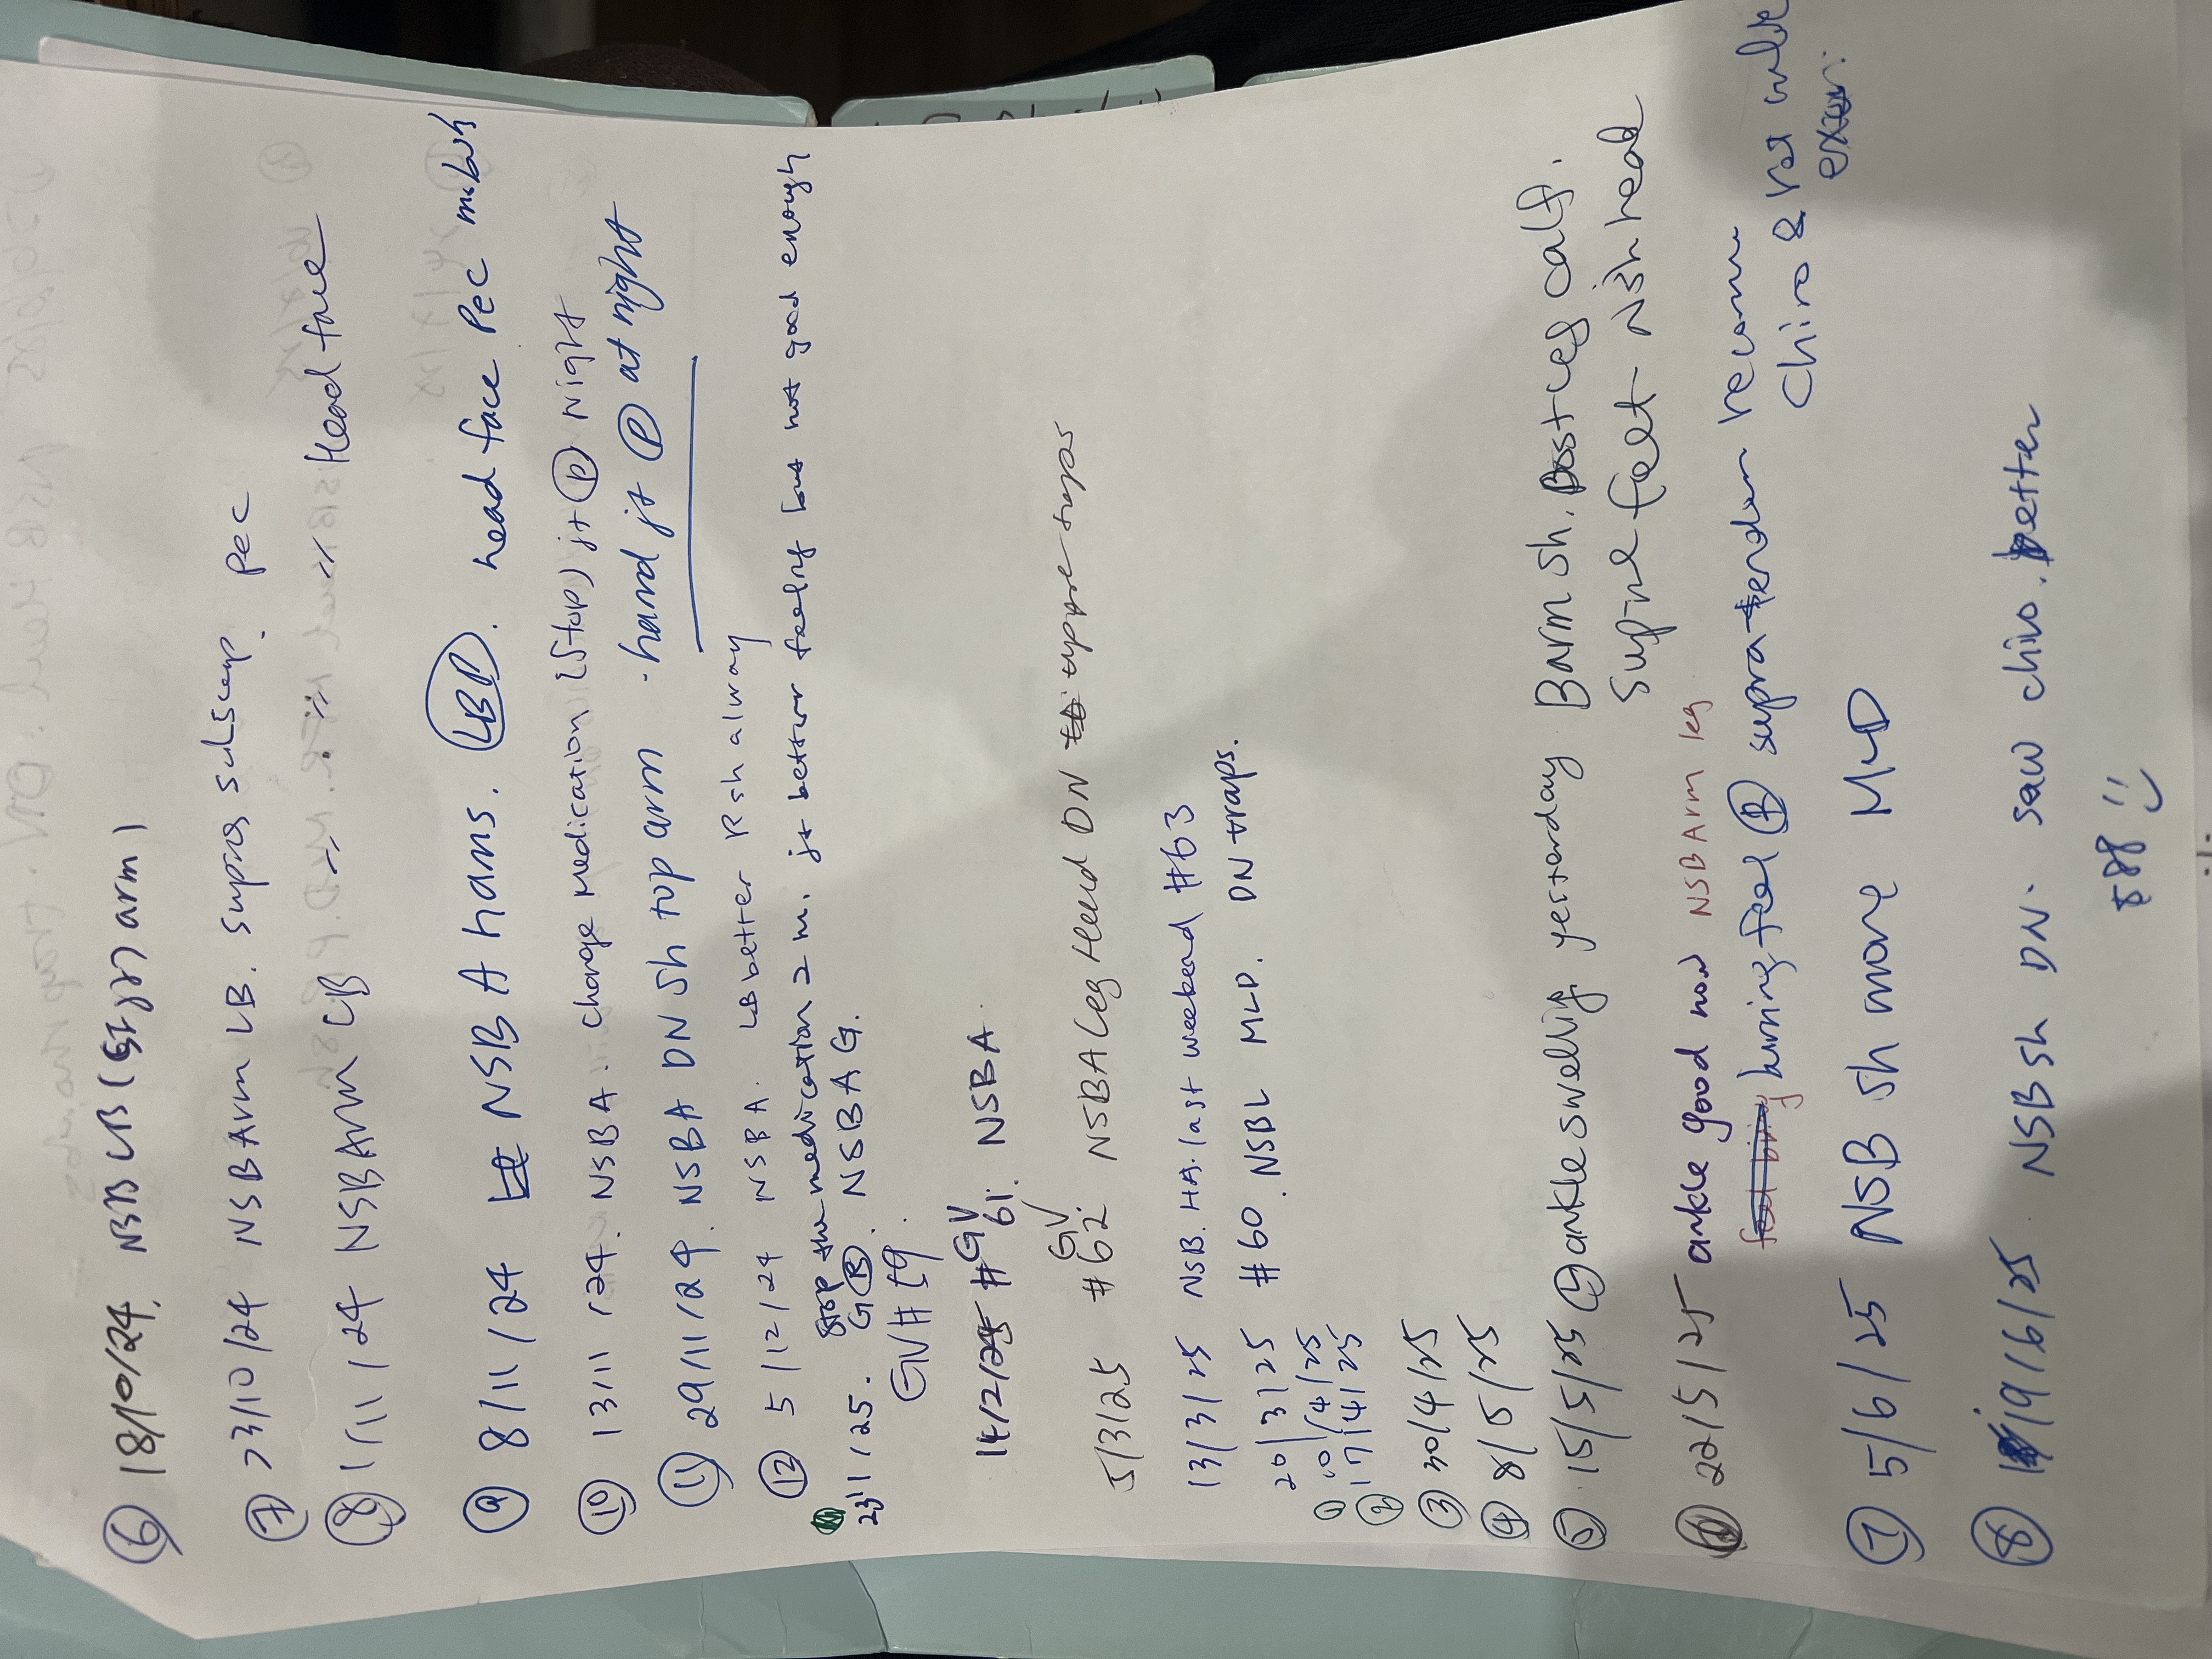 ⑥ 18/10/24. NSB LB ( arm)
⑦ 23/10/24 NSB Arm LB. supras subscap. pec
⑧ 1/11/24 NSBArm LB " " " Head face
⑨ 8/11/24 NSB A hans. LBP. head face Pec
⑩ 13/11/24. NSBA. Change Medication (Stop) jt Ⓟ Night
⑪ 29/11/24. NSBA DN Sh top arm · hand jt Ⓟ at night
⑫ 5/12/24 NSBA. LB better R sh alway
Stop the medication 2 m. jt better feeling but not good enough
23/1/25. G Ⓑ. NSBAG.
GV# 59.
14/2/25 #GV 61. NSBA
5/3/25 #GV 62 NSBA Leg Head DN upper traps
13/3/25 NSB. HA. last weekend #63
20/3/25 #60. NSBL MLD. DN traps.
① 10/4/25
② 17/4/25
③ 30/4/25
④ 8/5/25
⑤ 15/5/25 Ⓛ ankle swelling yesterday Barm sh. Post leg calf.
Supine feet - N sh head
⑥ 22/5/25 ankle good now NSB Arm leg
burning feel Ⓡ supra tendon
Chiro & hot
⑦ 5/6/25 NSB sh more MLD
⑧ 19/6/25 NSB sh DN. saw chiro. better
$88